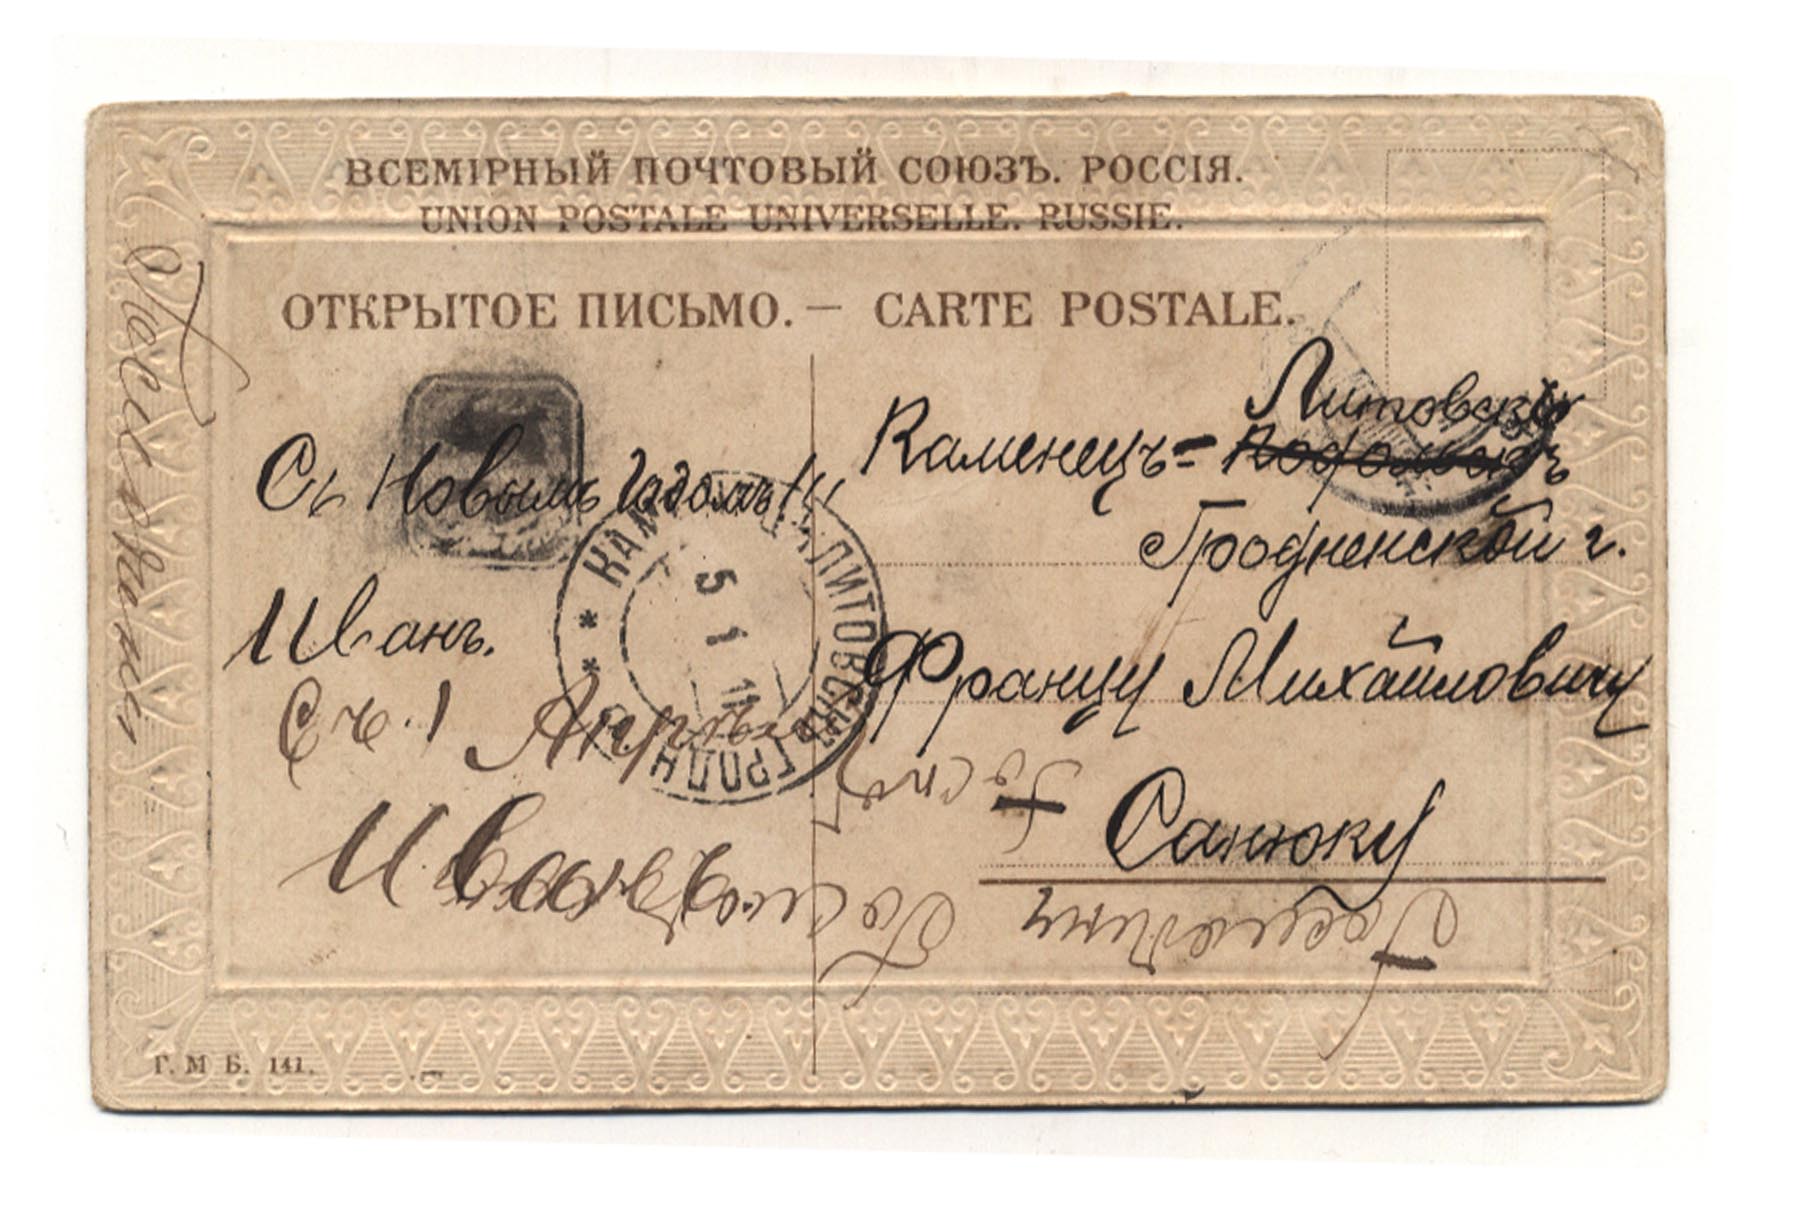 ВСЕМІРНЫЙ ПОЧТОВЫЙ СОЮЗЪ. РОССІЯ.
UNION POSTALE UNIVERSELLE. RUSSIE.
ОТКРЫТОЕ ПИСЬМО. — CARTE POSTALE.
Съ Новымъ Годомъ!!!
Иванъ.
Съ. 1
Иванъ
Литовскъ
Каменецъ-Подольскъ
Гродненской г.
Францу Михайловичу
Санюку
КАМ ЛИТОВСКЪ ГРОДН
5 1 11
Г. М Б. 141.